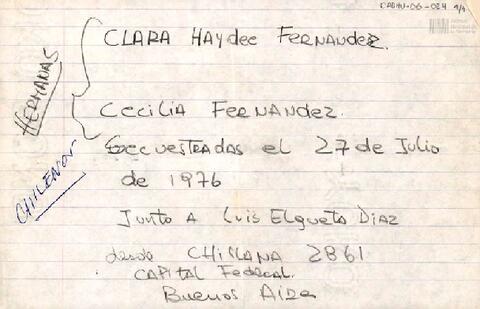 CADHU-06-024 1/1
CLARA HAYDee FERNANDEZ.
HERMANAS
Cecilia FERNANDEZ.
Secuestradas el 27 de Julio
de 1976
CHILENOS
Junto A Luis Elgueta Diaz
desde CHICLANA 2861
CAPITAL Federal.
Buenos Aires